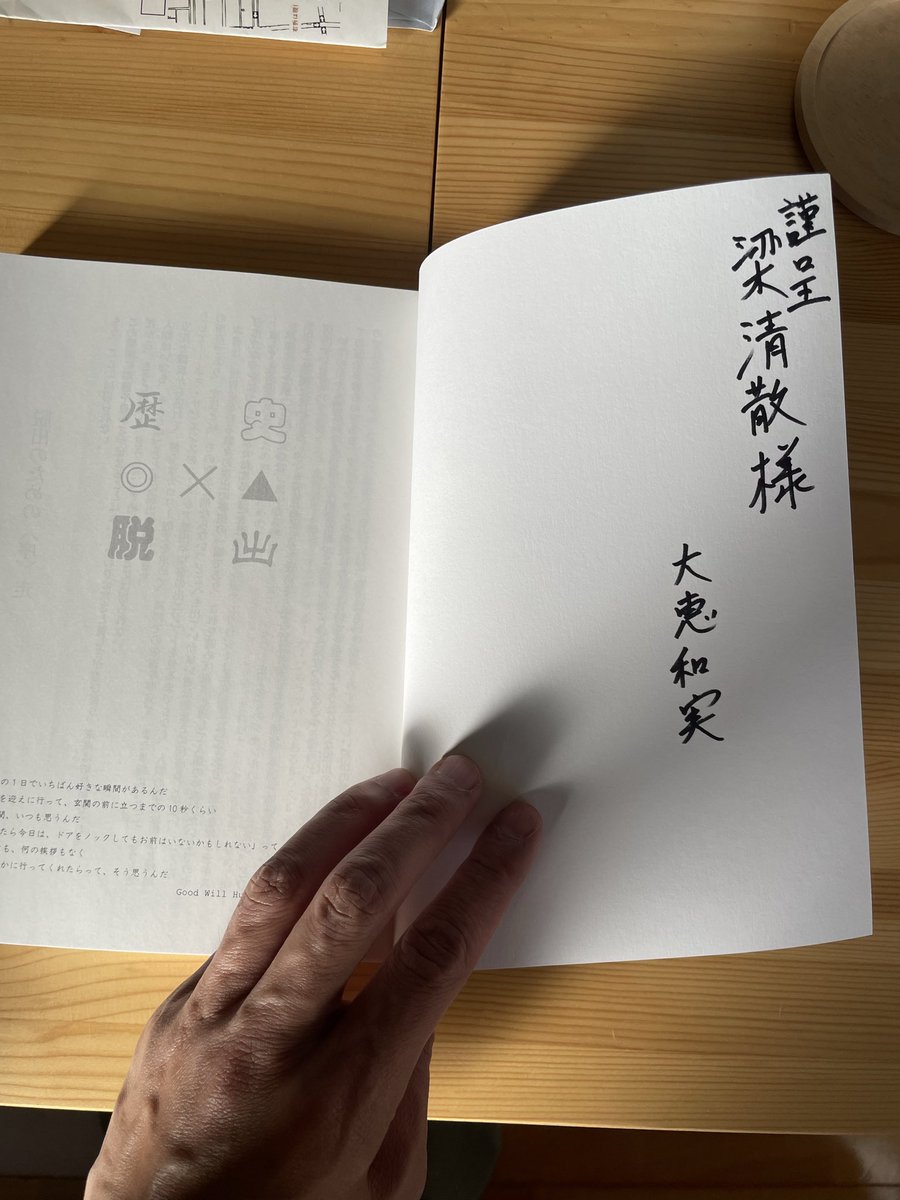 謹呈
梁清散様
大恵和実
歴 史
◎ × ▲
脱 出
の1日でいちばん好きな瞬間があるんだ
を迎えに行って、玄関の前に立つまでの10秒くらい
間、いつも思うんだ
たら今日は、ドアをノックしてもお前はいないかもしれない」って
も、何の挨拶もなく
かに行ってくれたらって、そう思うんだ
Good Will Hu